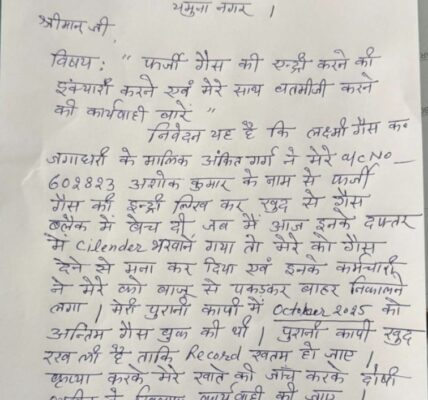 यमुना नगर ।
श्रीमान जी,
विषय : " फर्जी गैस की एन्ट्री करने की
इंक्वारी करने एवं मेरे साथ बतमीजी करने
की कार्यवाही बारे "
निवेदन यह है कि लक्ष्मी गैस क॰
जगाधरी के मालिक अंकित गर्ग ने मेरे a/c No –
602823 अशोक कुमार के नाम से फर्जी
गैस की इन्ट्री लिख कर खुद से गैस
ब्लैक में बेच दी जब मैं आज इनके दफ्तर
में Cilender भरवाने गया तो मेरे को गैस
देने से मना कर दिया एवं इनके कर्मचारी
ने मेरे को बाजू से पकड़कर बाहर निकालने
लगा । मेरी पुरानी कापी में October 2025 को
अन्तिम गैस बुक की थी । पुरानी कापी खुद
रख ली है ताकि Record खतम हो जाए ।
कृप्या करके मेरे खाते की जाँच करके दोषी
कार्यवाही की जाए ।